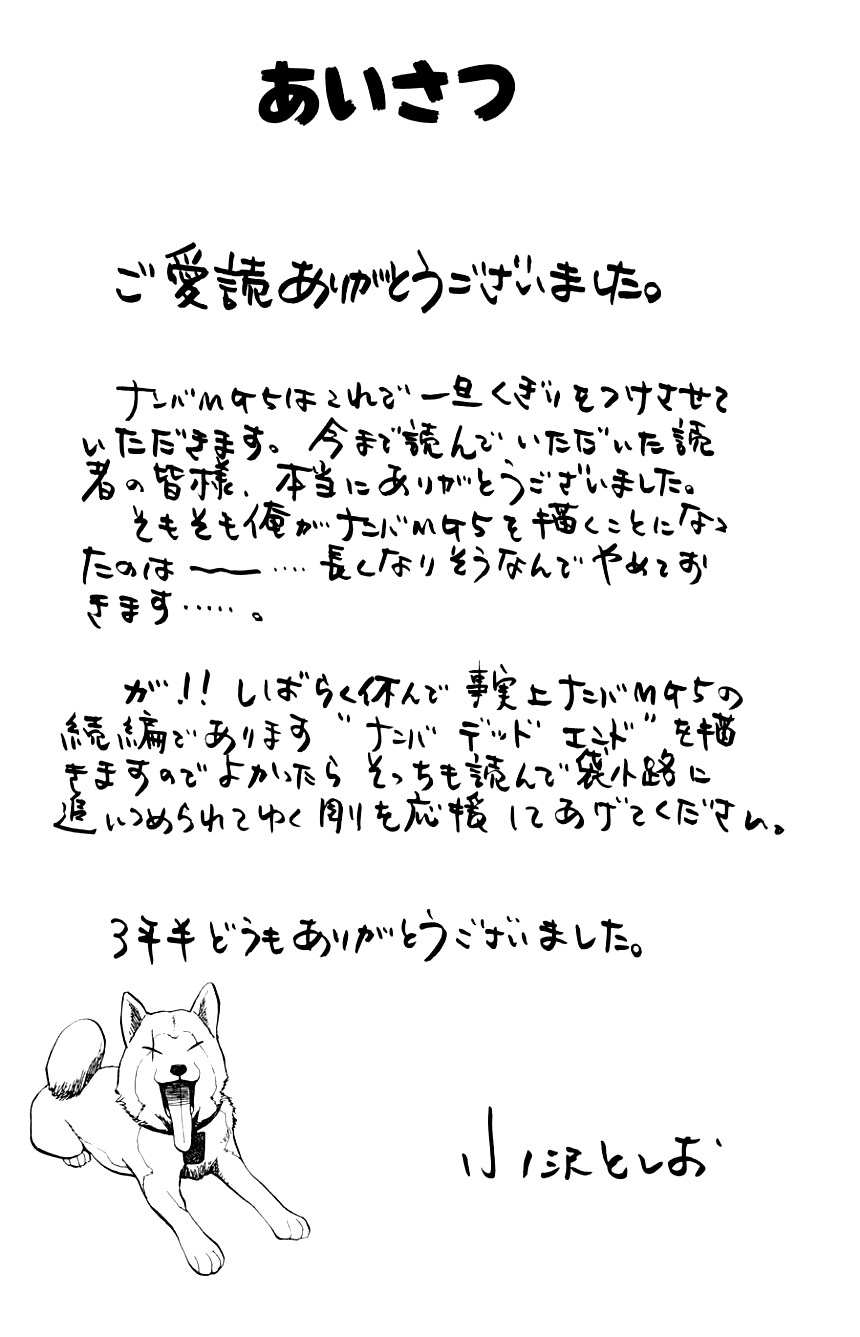 あいさつ
ご愛読ありがとうございました。
ナンバMG5はこれで一旦くぎりをつけさせて
いただきます。今まで読んでいただいた読
者の皆様、本当にありがとうございました。
そもそも俺がナンバMG5を描くことになっ
たのは――‥‥長くなりそうなんでやめてお
きます‥‥‥。
が!!しばらく休んで事実上ナンバMG5の
続編であります“ナンバ デッド エンド”を描
きますのでよかったらそっちも読んで袋小路に
追いつめられてゆく剛を応援してあげてください。
3年半どうもありがとうございました。
小沢としお